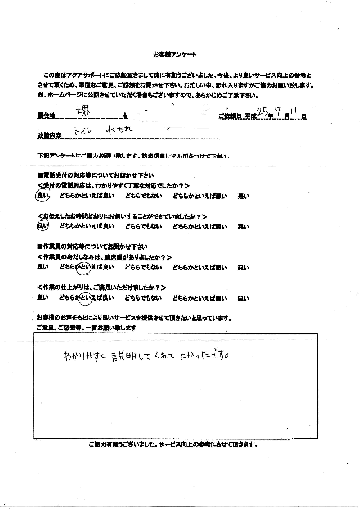 お客様アンケート
この度はアクアサポートにご依頼頂きまして誠に有難うございました。今後、より良いサービス向上の参考と
させて頂くため、率直なご意見、ご感想をお聞かせ下さい。お忙しい中、恐れ入りますがご協力お願いします。
尚、ホームページに公開させていただく場合もございますので、あらかじめご了承下さい。
堺 名 ご依頼日 平成25年9月11日
作業内容 トイレ 水もれ
下記アンケートにご協力お願い致します。該当項目に丸印をつけて下さい。
■電話受付の対応等についてお聞かせ下さい
<受付の電話対応は、わかりやすく丁寧な対応でしたか？>
良い どちらかといえば良い どちらでもない どちらかといえば悪い 悪い
<お伝えしたお時間どおりにお伺いすることができていましたか？>
良い どちらかといえば良い どちらでもない どちらかといえば悪い 悪い
■作業員の対応等についてお聞かせ下さい
<作業員の身だしなみは、清潔感がありましたか？>
良い どちらかといえば良い どちらでもない どちらかといえば悪い 悪い
<作業の仕上がりは、ご満足いただけましたか？>
良い どちらかといえば良い どちらでもない どちらかといえば悪い 悪い
お客様のお声をもとにより良いサービスを提供させて頂きたいと思っています。
ご意見、ご感想等、一言お願い致します
わかりやすく説明してくれてよかったです。
ご協力有難うございました。サービス向上の参考にさせて頂きます。